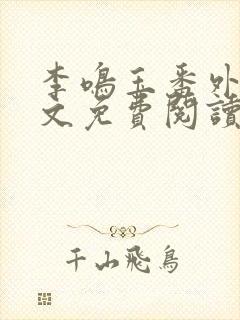 李鳴玉番外
文免費閱讀
千山飛鳥